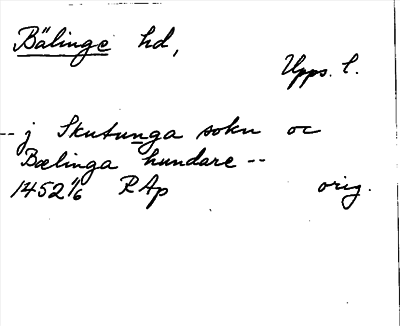 Bälinge hd,
Upps. l.
-- j Skutunga sokn oc
Bælinga hundare --
1452 1/6 RAp orig.